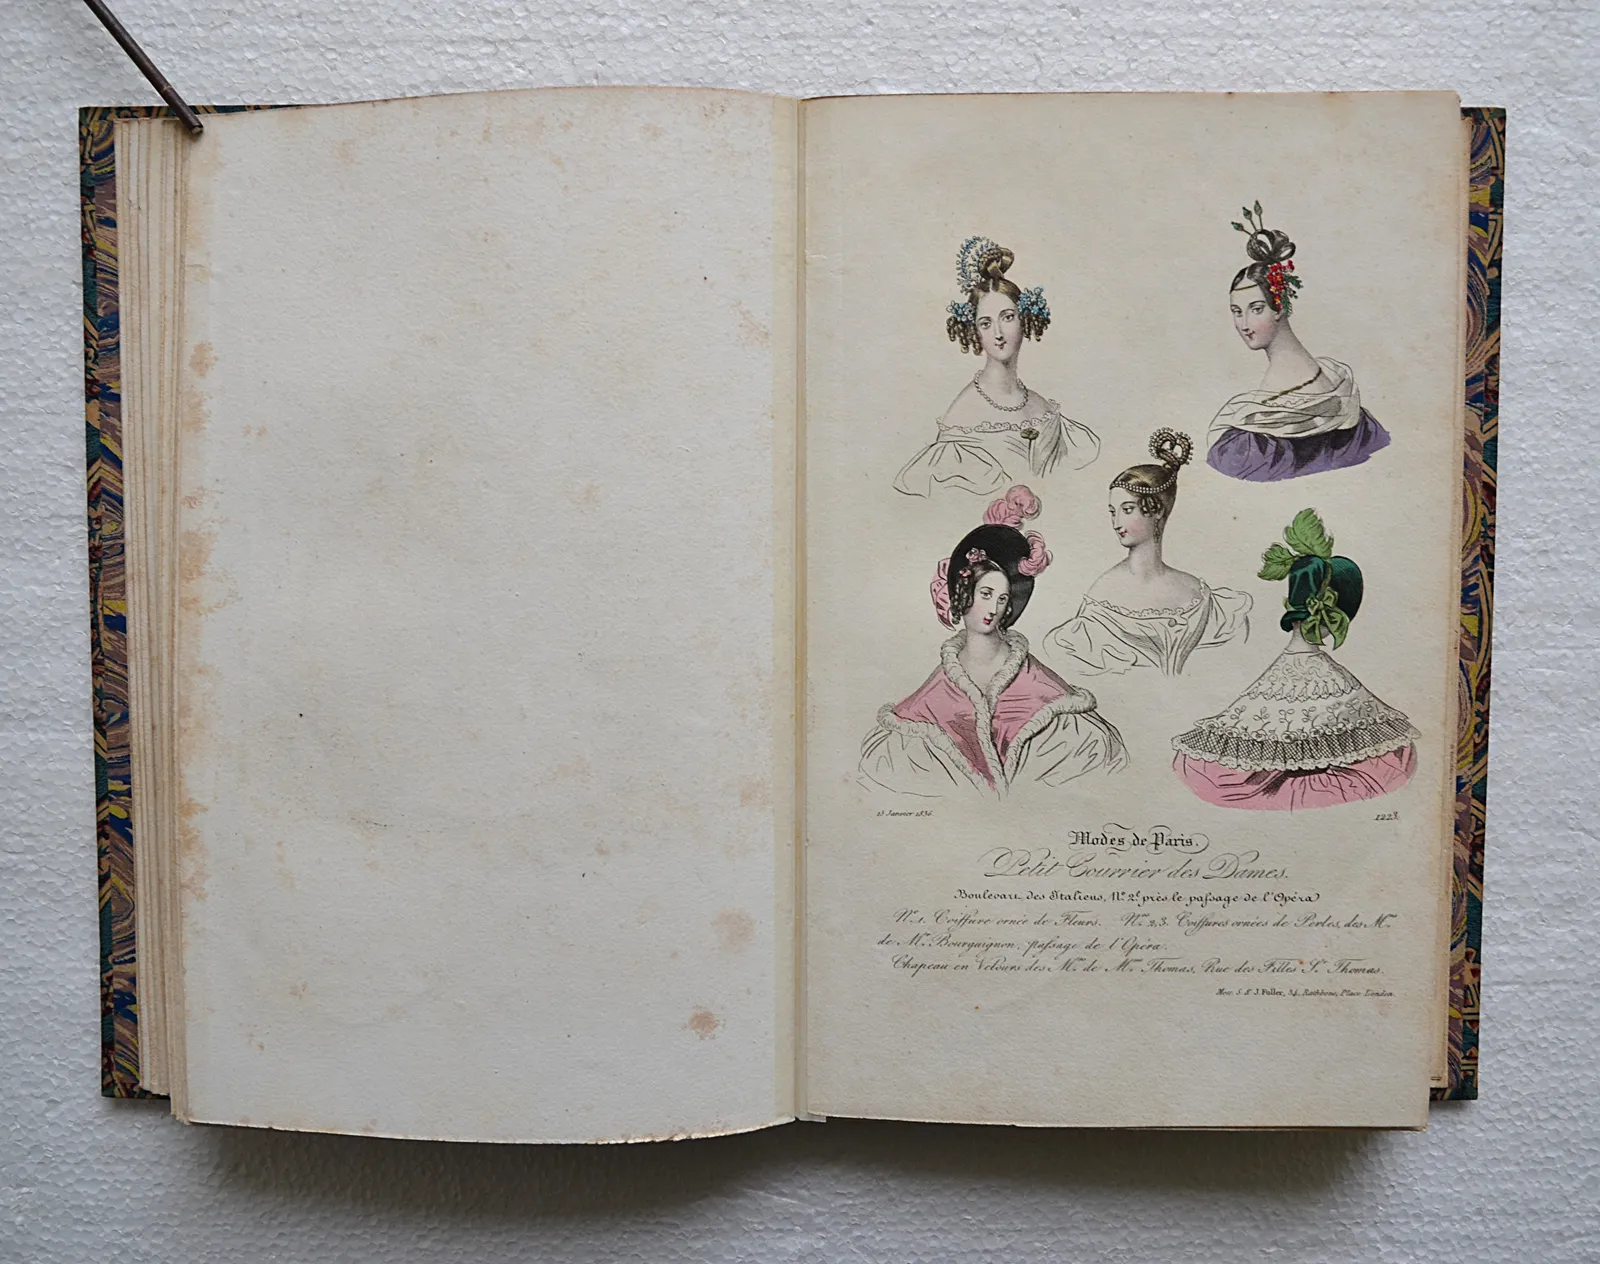 15 Janvier 1836.
1223.
Modes de Paris.
Petit Courrier des Dames.
Boulevart des Italiens, Nº 2ᶠ près le passage de l'Opéra
Nº 1. Coiffure ornée de Fleurs. Nᵒˢ 2, 3. Coiffures ornées de Perles, des Mⁱⁿˢ
de Mʳ Bourguignon, passage de l'Opéra.
Chapeau en Velours des Mⁱⁿˢ de Mᵐᵉ Thomas, Rue des Filles Sᵗ Thomas.
S. & J. Fuller, 34, Rathbone, Place London.